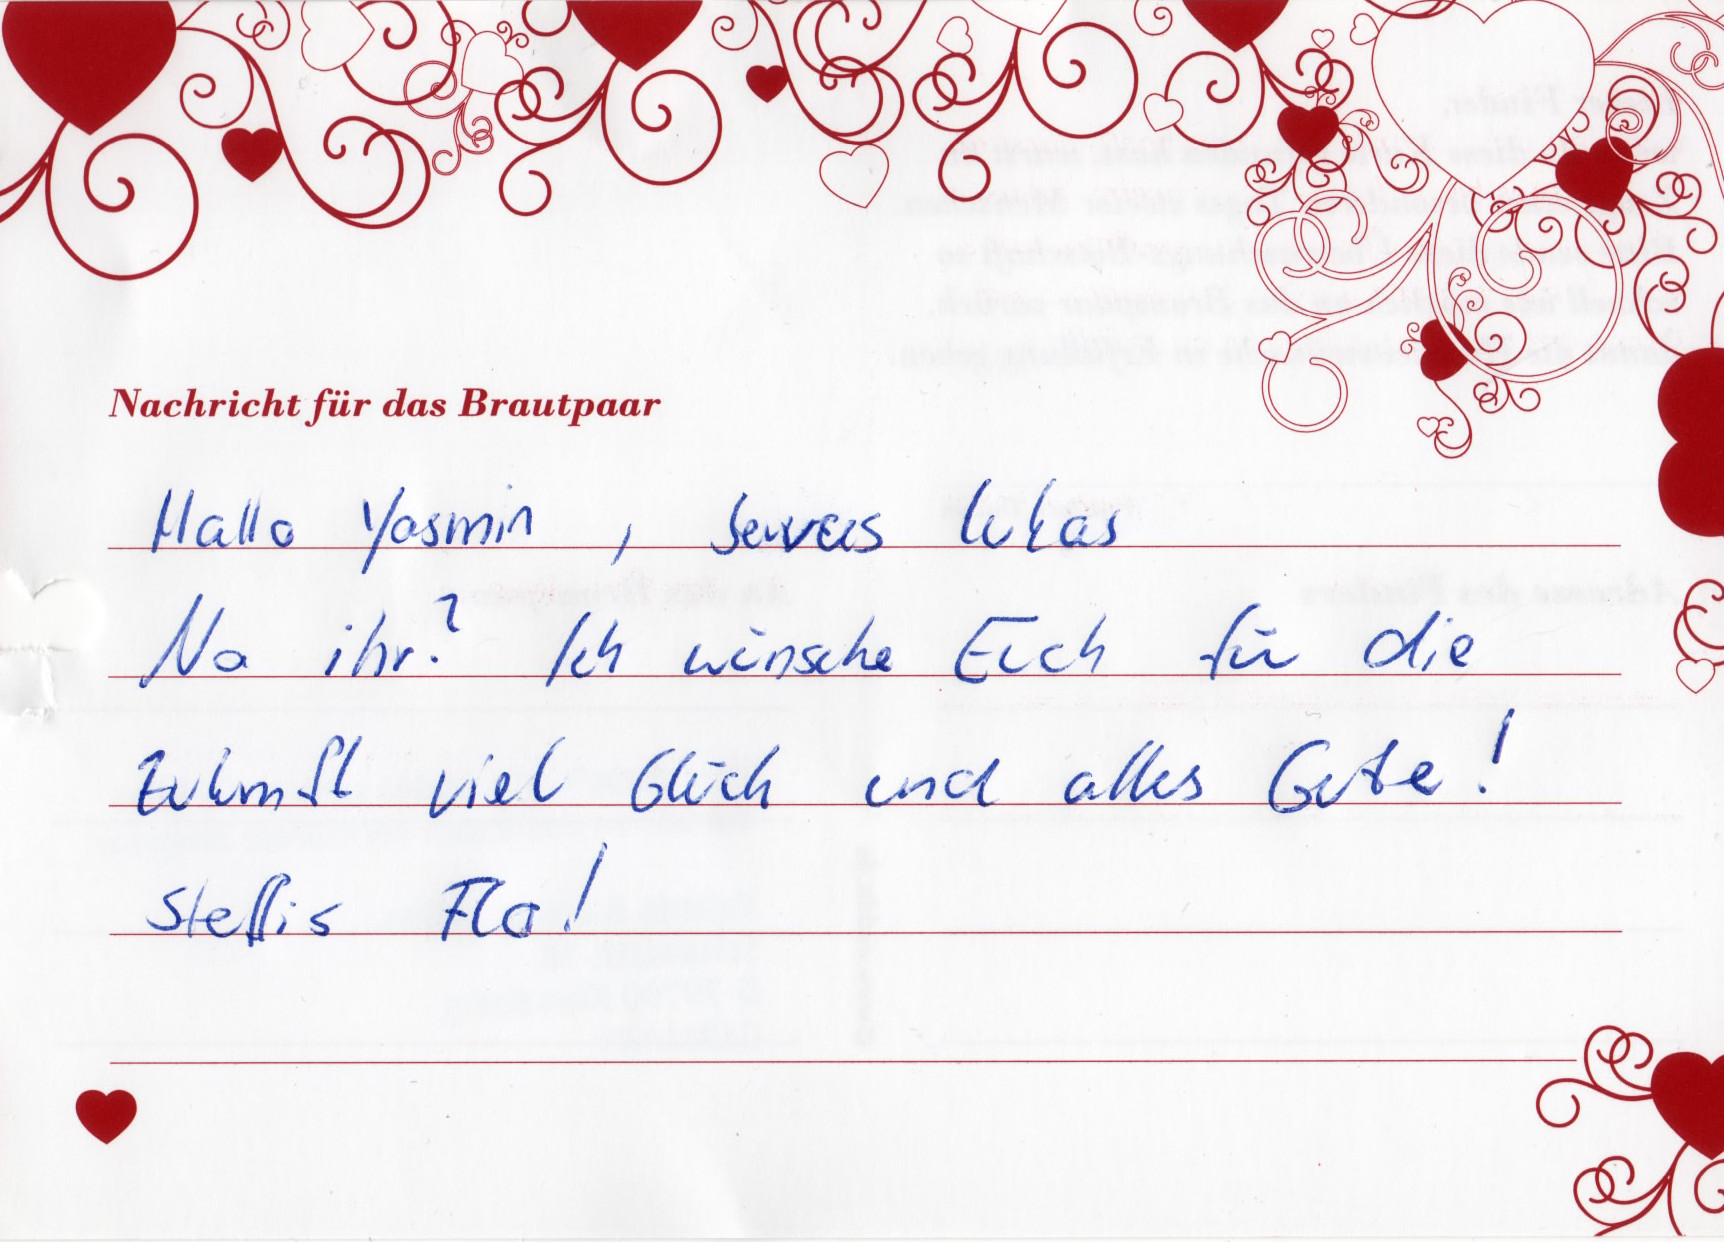 Nachricht für das Brautpaar
Hallo Yasmin, Servus Lukas
Na ihr? Ich wünsche Euch für die
Zukunft viel Glück und alles Gute!
Steffis Flo!